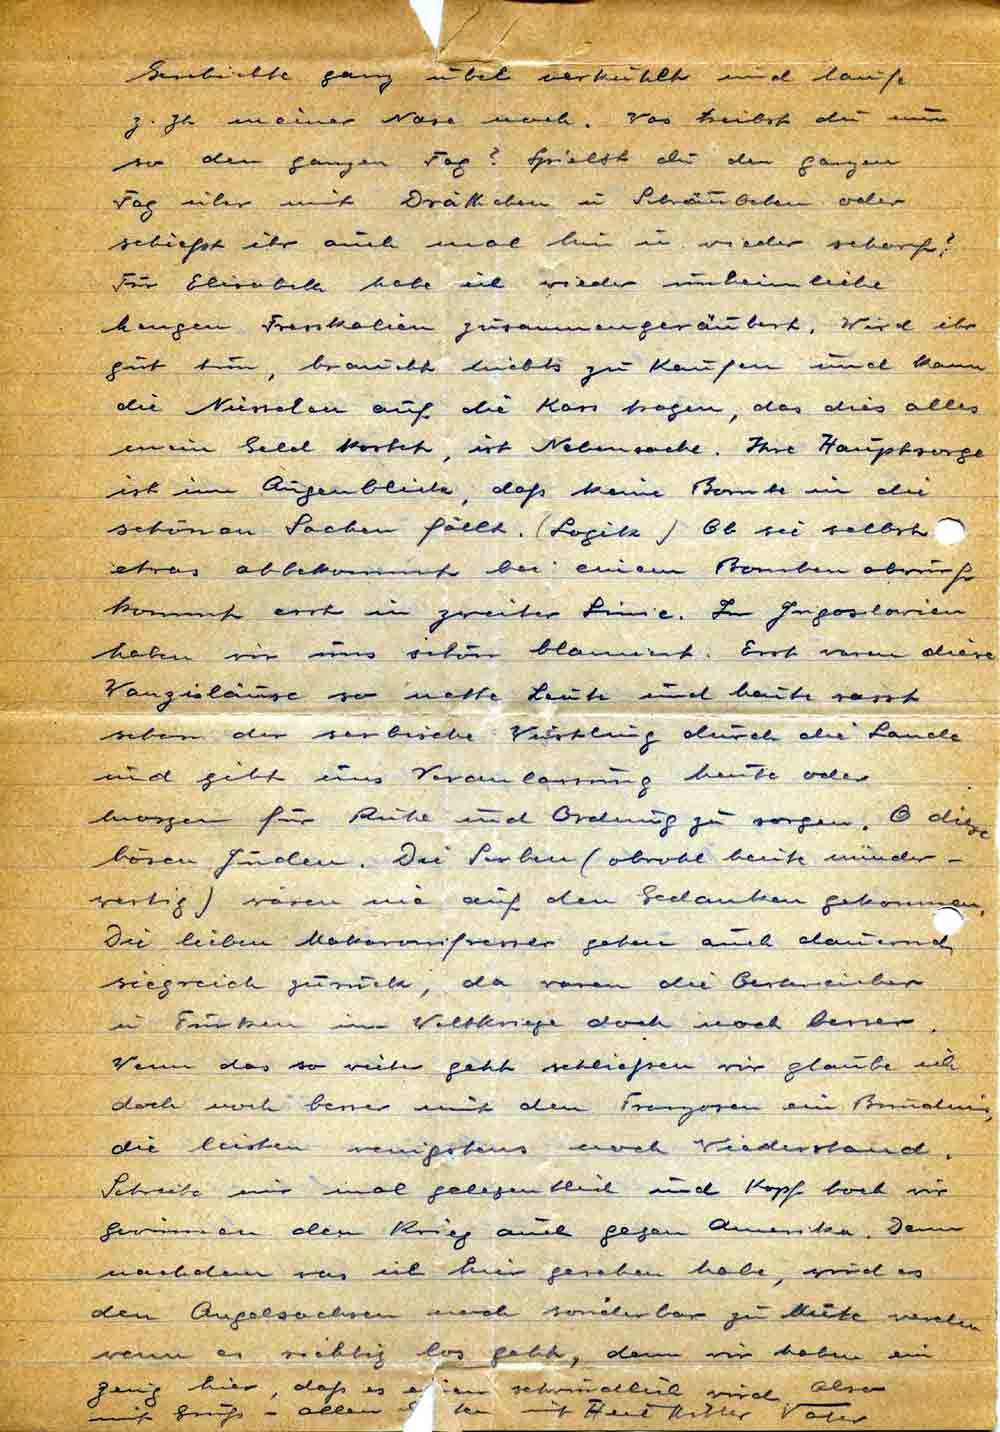 Geschichte ganz übel verkühlt und laufe
z. Zt. meiner Nase nach. Was treibst du nun
so den ganzen Tag? Spielst du den ganzen
Tag über mit Drähtchen u Schräubchen oder
schießt ihr auch mal hin u. wieder scharf?
Für Elisabeth habe ich wieder unheimliche
Mengen Fresskalien zusammengeräubert. Wird ihr
gut tun, braucht nichts zu kaufen und kann
die auf die Kass tragen, das dies alles
mein Geld kostet, ist Nebensache. Ihre Hauptsorge
ist im Augenblick, daß keine Bombe in die
schönen Sachen fällt. (Logik) Ob sie selbst
etwas abbekommt bei einem Bombenabwurf
kommt erst in zweiter Linie. In Jugoslavien
haben wir uns schön blamiert. Erst waren diese
Wanzisläuse so nette Leute und heute rasst
schon der serbische Wüstling durch die Lande
und gibt uns Veranlassung heute oder
morgen für Ruhe und Ordnung zu sorgen. O diese
bösen Juden. Die Serben (obwohl heute minder-
wertig) wären nie auf den Gedanken gekommen.
Die lieben Makaronifresser gehen auch dauernd
siegreich zurück, da waren die Oesterreicher
u Türken im Weltkriege doch noch besser.
Wenn das so weiter geht schließen wir glaube ich
doch noch besser mit den Franzosen ein Bündnis,
die leisten wenigstens noch Wiederstand.
Schreibe mir mal gelegentlich und Kopf hoch wir
gewinnen den Krieg auch gegen Amerika. Denn
nachdem was ich hier gesehen habe, wird es
den Angelsachsen noch sonderbar zu Mute werden
wenn es richtig los geht, denn wir haben ein
Zeug hier, daß es einen schwindlich wird. Also
mit Gruß - allen mit Heil Hitler Vater